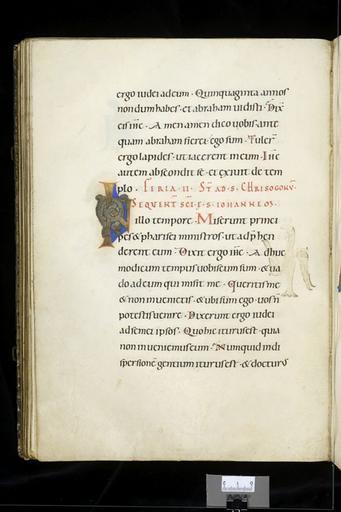 ergo iudei ad eum · Quinquaginta annos
non dum habes · et abraham uidisti · Dix
eis ihc · Amen amen dico uobis ante
quam abraham fieret ego sum · Tuler
ergo lapides · ut iacerent in eum · Ihc
autem abscondit se · et exiuit de tem
plo · FERIA · II · STAD · S · CHRISOGONU ·
SEQUENT SCI · E · S · IOHANNEOS ·
IN illo tempore · Miserunt princi
pes & pharisei ministros · ut adphen
derent eum · Dixit ergo ihc · Adhuc
modicum tempus uobiscum sum · & ua
do ad eum qui misit me · Queritis me
& non inuenietis · & ubi sum ego · uos n
potestis uenire · Dixerunt ergo iudei
ad semet ipsos · Quo hic iturus est · quia
non inueniemus eum · Numquid in di
spersione gentium iturus est · & docturus